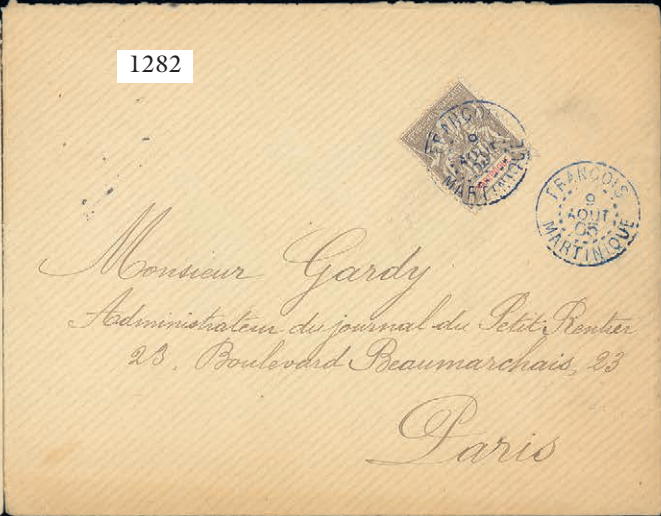 1282
FRANÇOIS
9
AOUT
05
MARTINIQUE
FRANÇOIS
9
AOUT
05
MARTINIQUE
Monsieur Gardy
Administrateur du journal du Petit Rentier
23, Boulevard Beaumarchais, 23
Paris